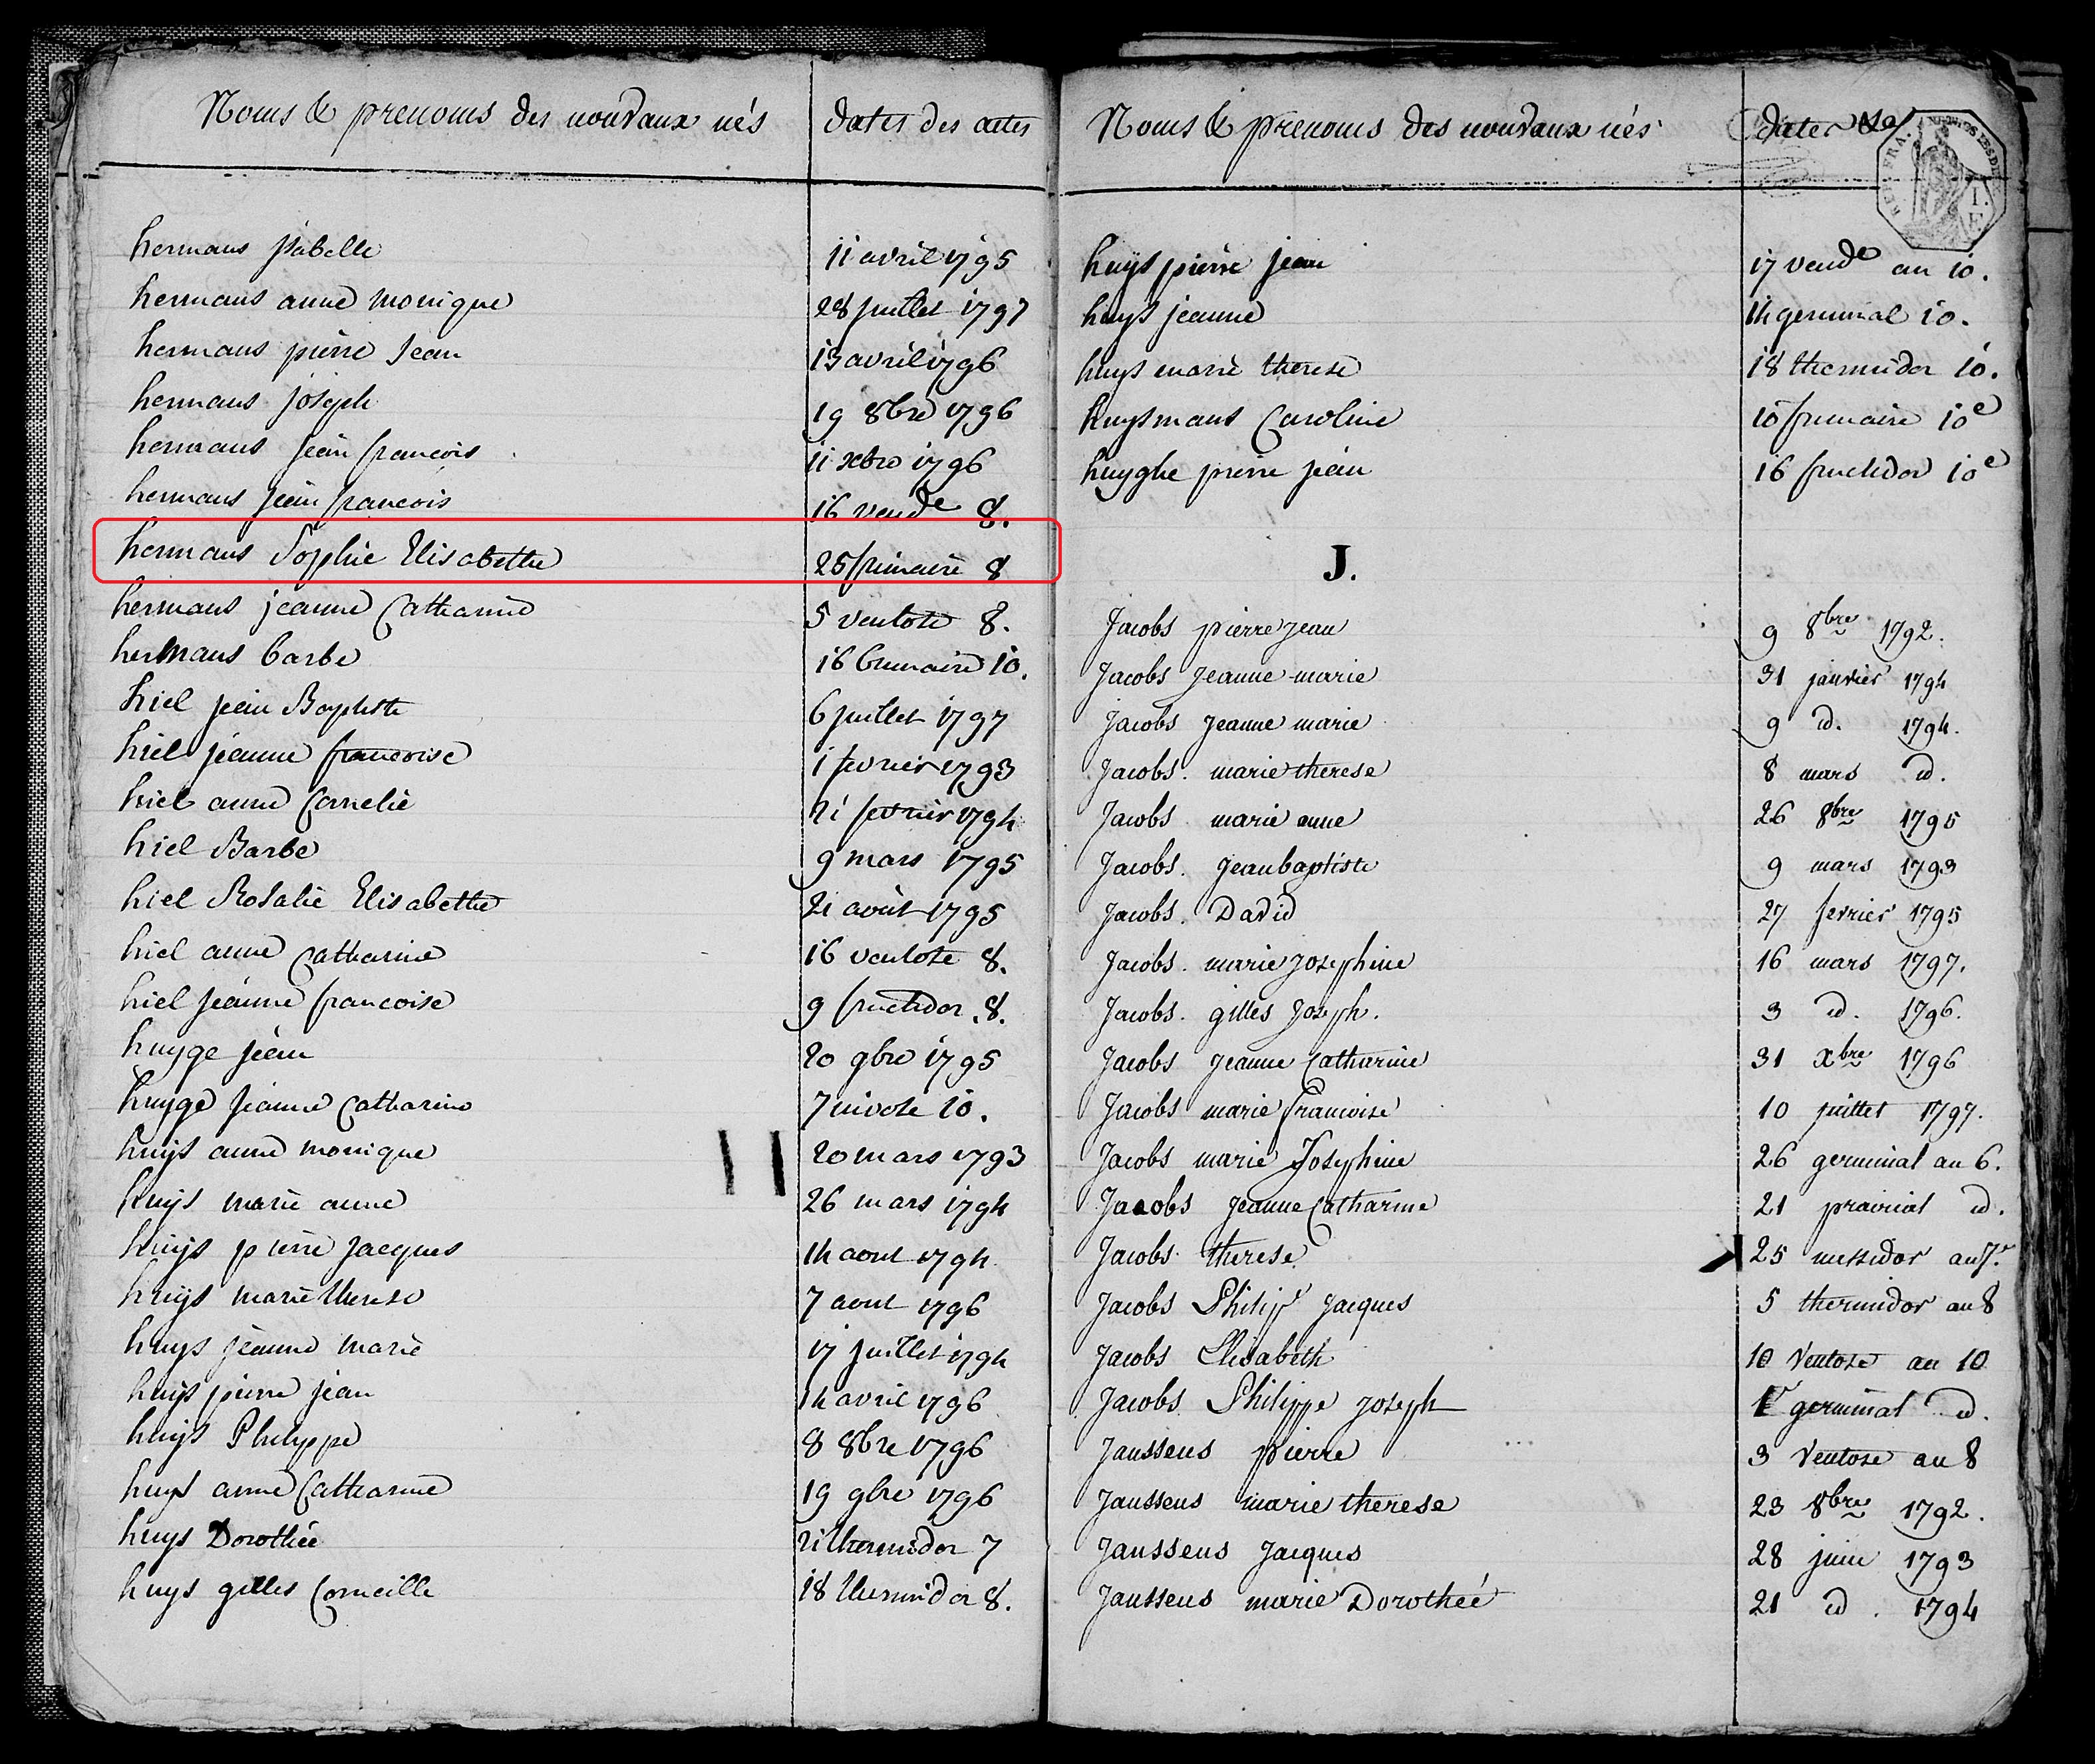 Noms & prenoms des nouveaux nés
dates des actes
hermans isabelle 11 avril 1795
hermans anne monique 28 juillet 1797
hermans pierre Jean 13 avril 1796
hermans joseph 19 8bre 1796
hermans jean francois 11 xbre 1796
hermans jean francois 16 vende 8.
hermans Sophie Elisabethe 25 frimaire 8
hermans jeanne Catharine 5 ventose 8.
hermans barbe 16 brumaire 10.
hiel jean Baptiste 6 juillet 1797
hiel jeanne francoise 1 fevrier 1793
hiel anne Cornelie 21 fevrier 1794
hiel Barbe 9 mars 1795
hiel Rosalie Elisabethe 21 août 1795
hiel anne Catharine 16 ventose 8.
hiel jeanne francoise 9 fructidor .8.
huyge jean 20 9bre 1795
huyge jeanne Catharine 7 nivose 10.
huys anne monique 20 mars 1793
huys marie anne 26 mars 1794
huys pierre jacques 14 aout 1794
huys marie therese 7 aout 1796
huys jeanne marie 17 juillet 1794
huys pierre jean 14 avril 1796
huys Philippe 8 8bre 1796
huys anne Catharine 19 9bre 1796
huys Dorothée 21 thermidor 7
huys gilles Corneille 18 thermidor 8.
Noms & prenoms des nouveaux nés
dates
REP. FRA.
huys pierre jean 17 vende an 10.
huys jeanne 14 germinal 10.
huys marie therese 18 thermidor 10.
huysmans Caroline 10 frimaire 10e
huyghe pierre jean 16 fructidor 10e
J.
Jacobs pierre jean 9 8bre 1792.
Jacobs Jeanne marie 31 janvier 1794
Jacobs jeanne marie 9 id. 1794.
Jacobs. marie therese 8 mars id.
Jacobs marie anne 26 8bre 1795
Jacobs. jean baptiste 9 mars 1793
Jacobs. David 27 fevrier 1795
Jacobs. marie josephine 16 mars 1797.
Jacobs. gilles joseph. 3 id. 1796.
Jacobs jeanne Catharine 31 xbre 1796
Jacobs marie francoise 10 juillet 1797.
Jacobs marie Josephine 26 germinal an 6.
Jacobs jeanne Catharine 21 prairial id.
Jacobs therese 25 messidor an 7.
Jacobs Philip jacques 5 thermidor an 8
Jacobs Elisabeth 10 Ventose an 10
Jacobs Philippe joseph 1r germinal id.
Janssens pierre 3 Ventose an 8
Janssens marie therese 23 8bre 1792.
Janssens Jacques 28 juin 1793
Janssens marie Dorothéé 21 id. 1794